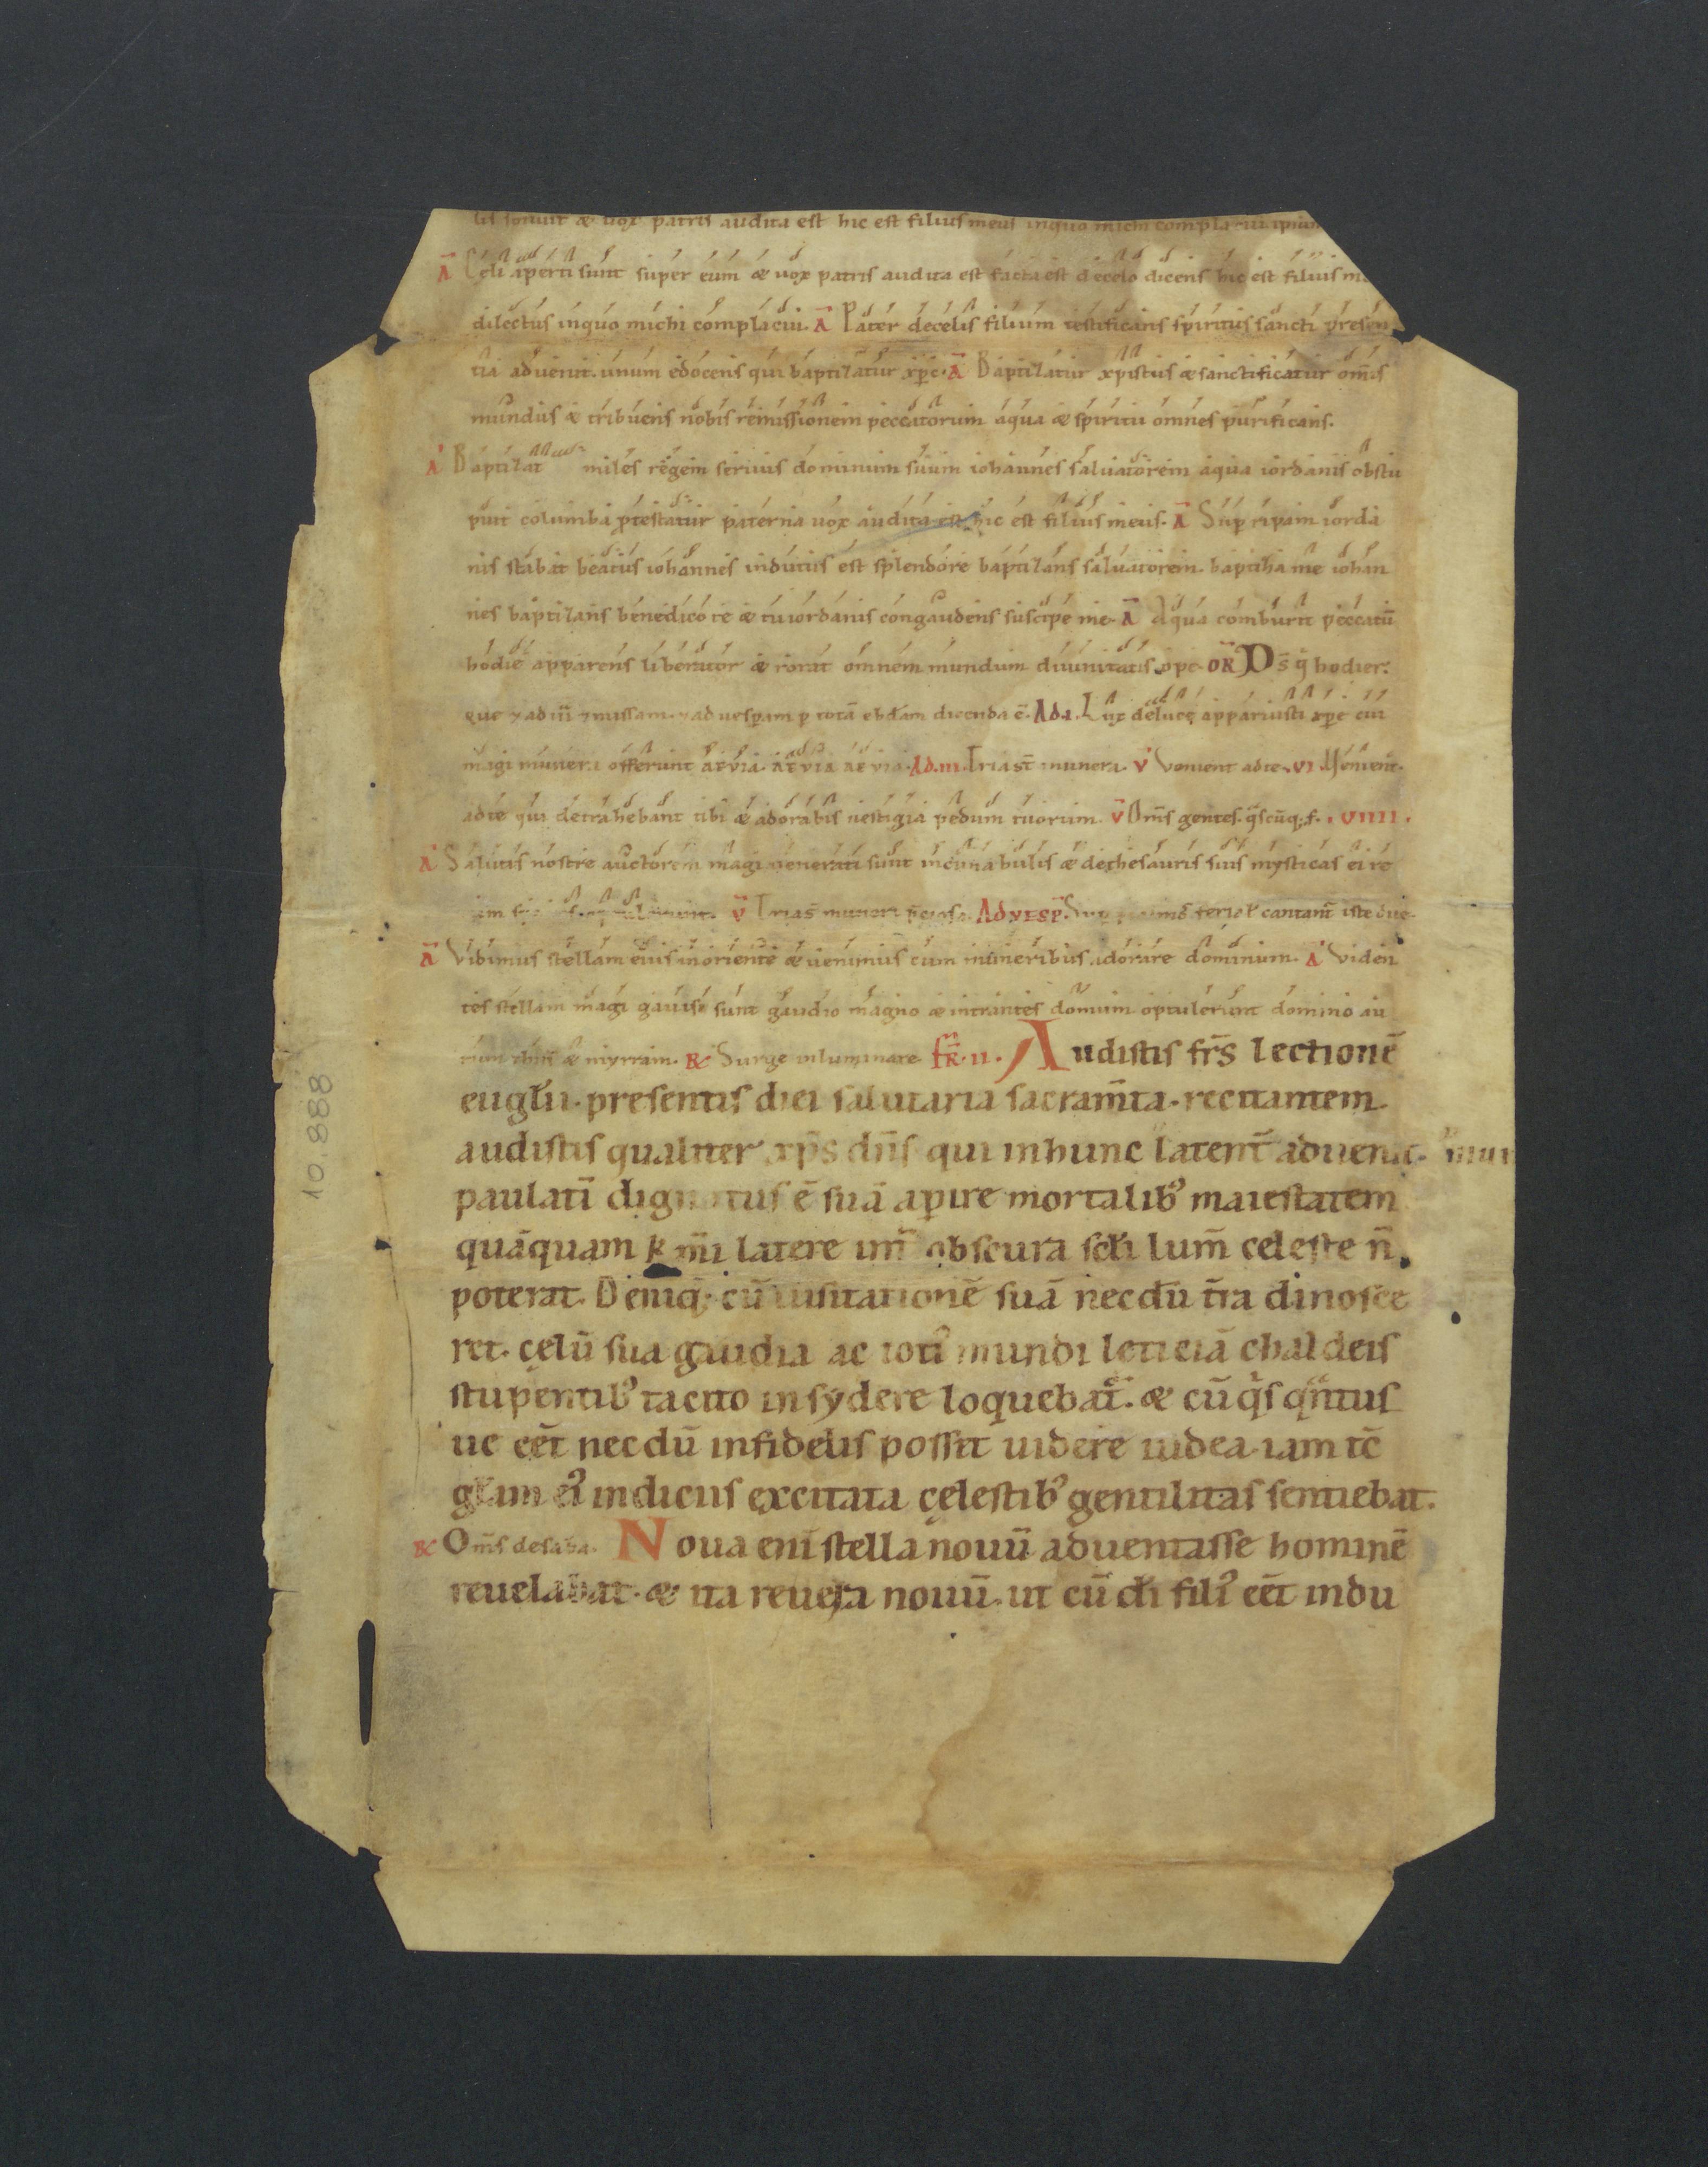 lis sonuit & uox patris audita est hic est filius meus inquo michi complacui ipsum
A Celi aperti sunt super eum & uox patris audita est facta est decelo dicens hic est filius m
dilectus inquo michi complacui. A Pater decelis filium testificans spiritus sancti presen
tia aduenit. unum edocens qui baptizatur xp̄c. A Baptizatur xpistus & sanctificatur om̄s
mundus & tribuens nobis remissionem peccatorum aqua & spiritu omnes purificans.
A Baptizat miles regem seruus dominum suum iohannes saluatorem aqua iordanis obstu
puit columba p̄testatur paterna uox audita est hic est filius meus. A Sup̄ ripam iorda
nis stabat beatus iohannes indutus est splendore baptizans saluatorem. baptiza me iohan
nes baptizans benedico te & tu iordanis congaudens suscipe me. A Aqua comburit peccatū
hodie apparens liberator & rorat omnem mundum diuinitatis ope. OR̄ Ds̄ q̄ hodier.
que 7 ad iii 7 missam. 7 ad uesp̄am p̄ totā ebdam dicenda ē. Ad.i. Lux deluce apparuisti xp̄c cui
magi munera offerunt aeuia. aeuia aeuia. Ad.iii. Tria st̄ munera. V Venient adte. vi. Venient
adte qui detrahebant tibi & adorabis uestigia pedum tuorum. V Om̄s gentes. q̄scūq; f. .VIIII.
A Salutis nostre auctorem magi uenerati sunt incunabulis & dethesauris suis mysticas ei re
V Tria s̄ munera p̄ciosa. AdVESP̄. cantant̄ iste due
A Vidimus stellam eius inoriente & uenimus cum muneribus adorare dominum. A Viden
tes stellam magi gauisi sunt gaudio magno & intrantes domum optulerunt domino au
rum thus & myrram. R Surge inluminare. FR̄.II. Audistis fr̄s lectionē
eugłii. presentis diei salutaria sacram̄ta. recitantem.
audistis qualiter xp̄s dn̄s qui inhunc latent̄ aduenit. mun
paulatī dignatus ē suā ap̄ire mortalib; maiestatem
quāquam latere int̄ obscura scłi lum̄ celeste n̄
poterat. Deniq; cū uisitationē suā necdū tr̄a dinosce
ret. cęlū sua gaudia ac totī mundi leticiā chaldeis
stupentib; tacito in sydere loquebat̄. & cū q̄s q̄ntus
ue eēt necdū infidelis possit uidere iudea. iam tc̄
głam ei; indiciis excitata cęlestib; gentilitas sentiebat.
R Om̄s desaba. Noua enī stella nouū aduentasse hominē
reuelabat. & ita reuera nouū. ut cū dī fili; eēt indu
10.888